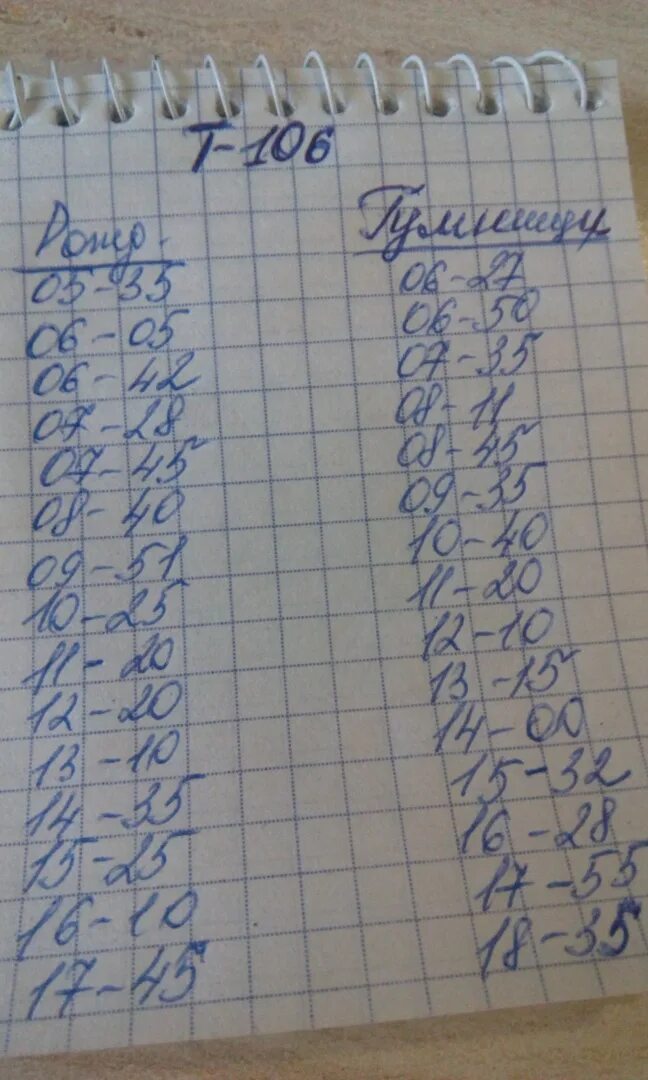 Т-106
Рожд. Гумнищи
05-35 06-27
06-05 06-50
06-42 07-35
07-28 08-11
07-45 08-45
08-40 09-35
09-51 10-40
10-25 11-20
11-20 12-10
12-20 13-15
13-10 14-00
14-35 15-32
15-25 16-28
16-10 17-55
17-45 18-35